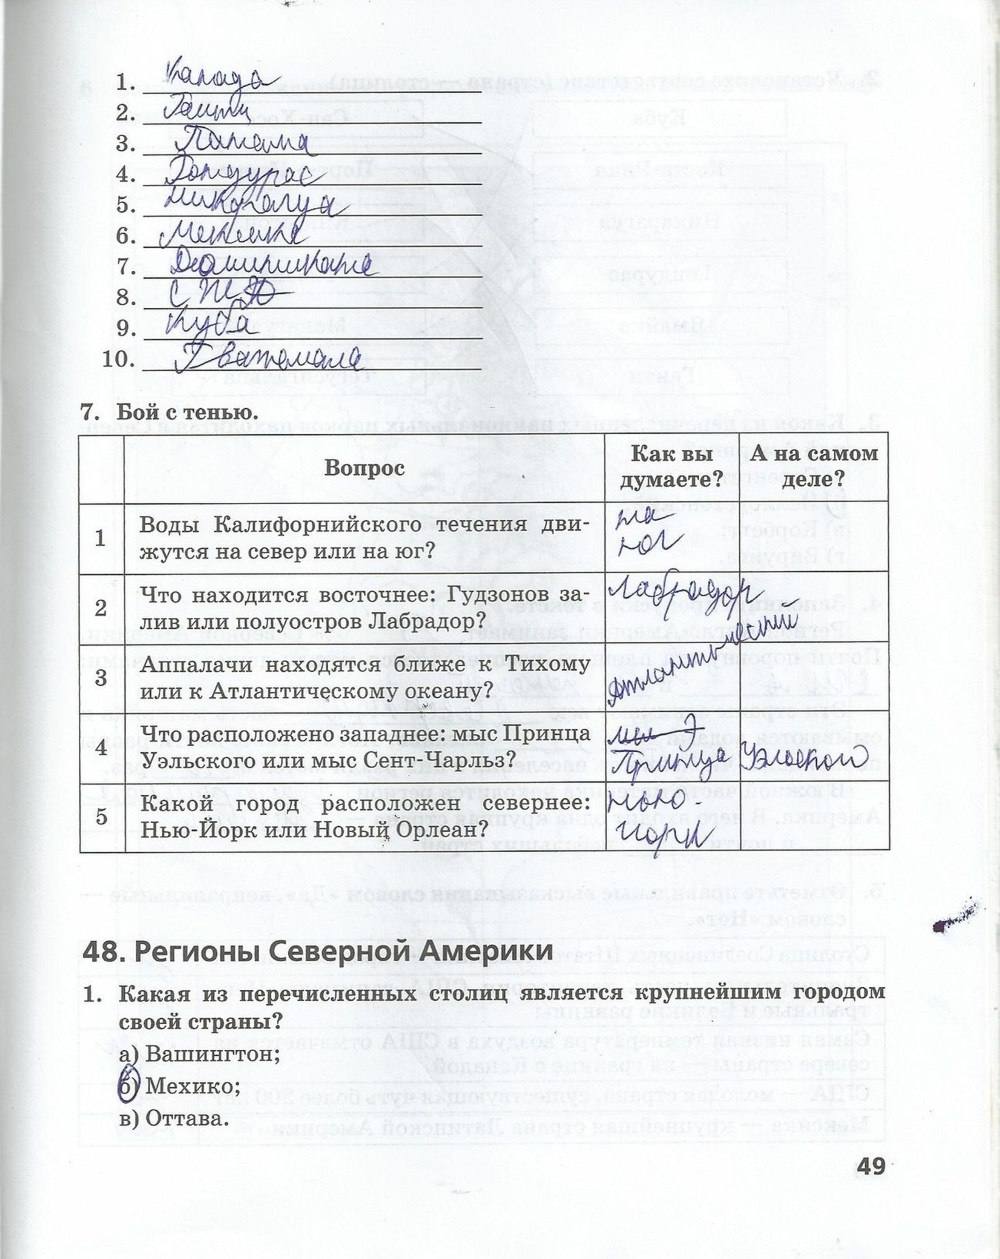 1. Канада
2. Гаити
3. Панама
4. Гондурас
5. Никарагуа
6. Мексика
7. Доминикана
8. США
9. Куба
10. Гватемала
7. Бой с тенью.
Вопрос
Как вы думаете?
А на самом деле?
1
Воды Калифорнийского течения дви-
жутся на север или на юг?
на
юг
2
Что находится восточнее: Гудзонов за-
лив или полуостров Лабрадор?
Лабрадор
3
Аппалачи находятся ближе к Тихому
или к Атлантическому океану?
Атлантический
4
Что расположено западнее: мыс Принца
Уэльского или мыс Сент-Чарльз?
Принца Уэльского
5
Какой город расположен севернее:
Нью-Йорк или Новый Орлеан?
Нью-
Йорк
48. Регионы Северной Америки
1. Какая из перечисленных столиц является крупнейшим городом
своей страны?
а) Вашингтон;
б) Мехико;
в) Оттава.
49